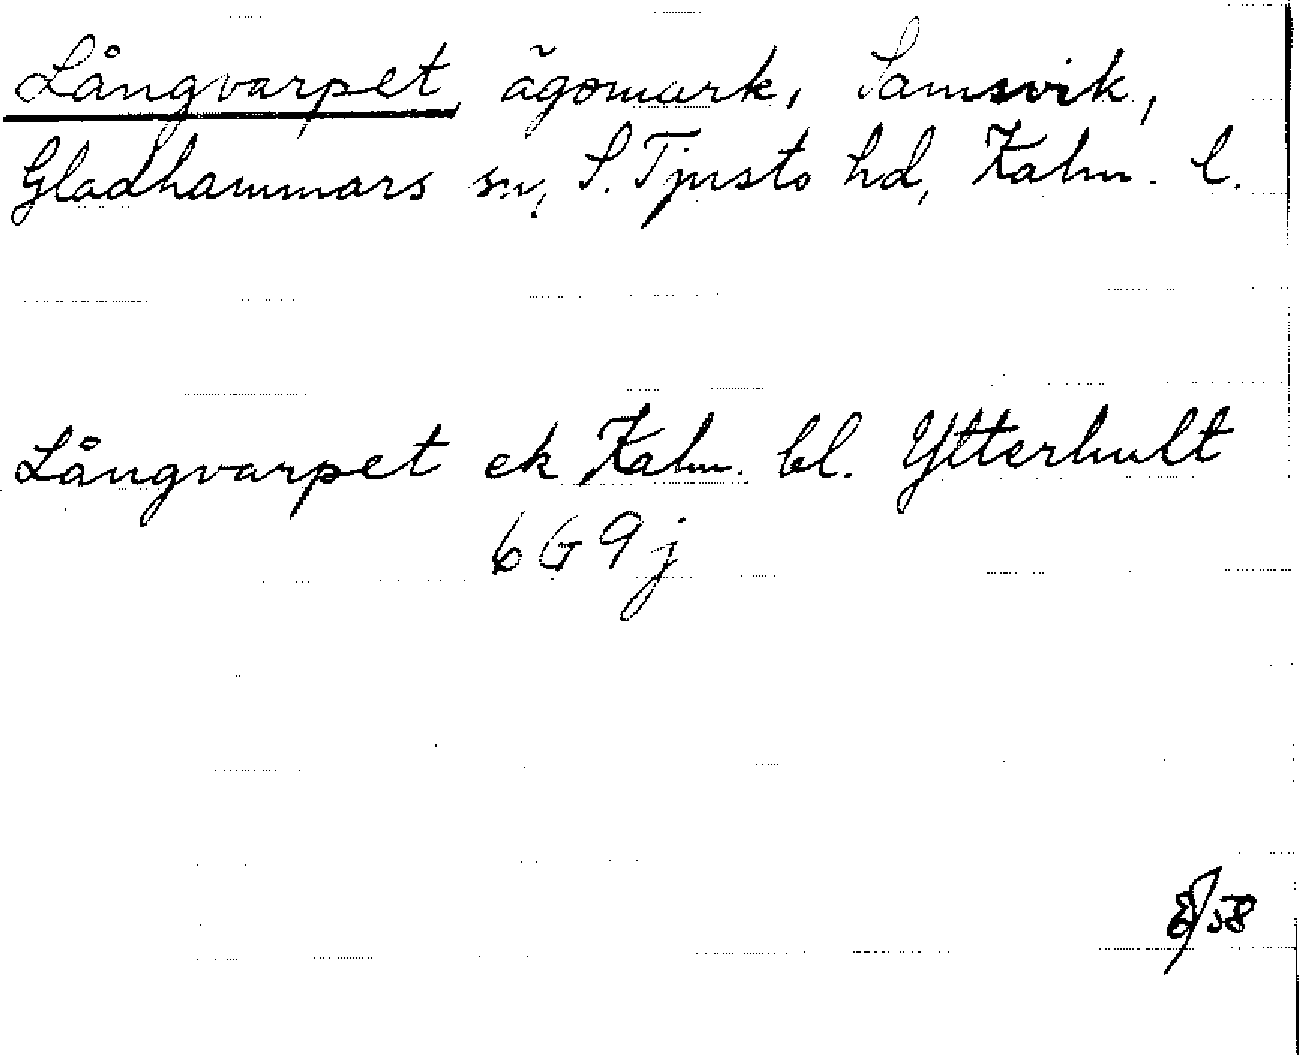 Långvarpet, ägomark, Samsvik,
Gladhammars sn, S. Tjusts hd, Kalm. l.
Långvarpet ek Kalm. bl. Ytterhult
6 G 9 j